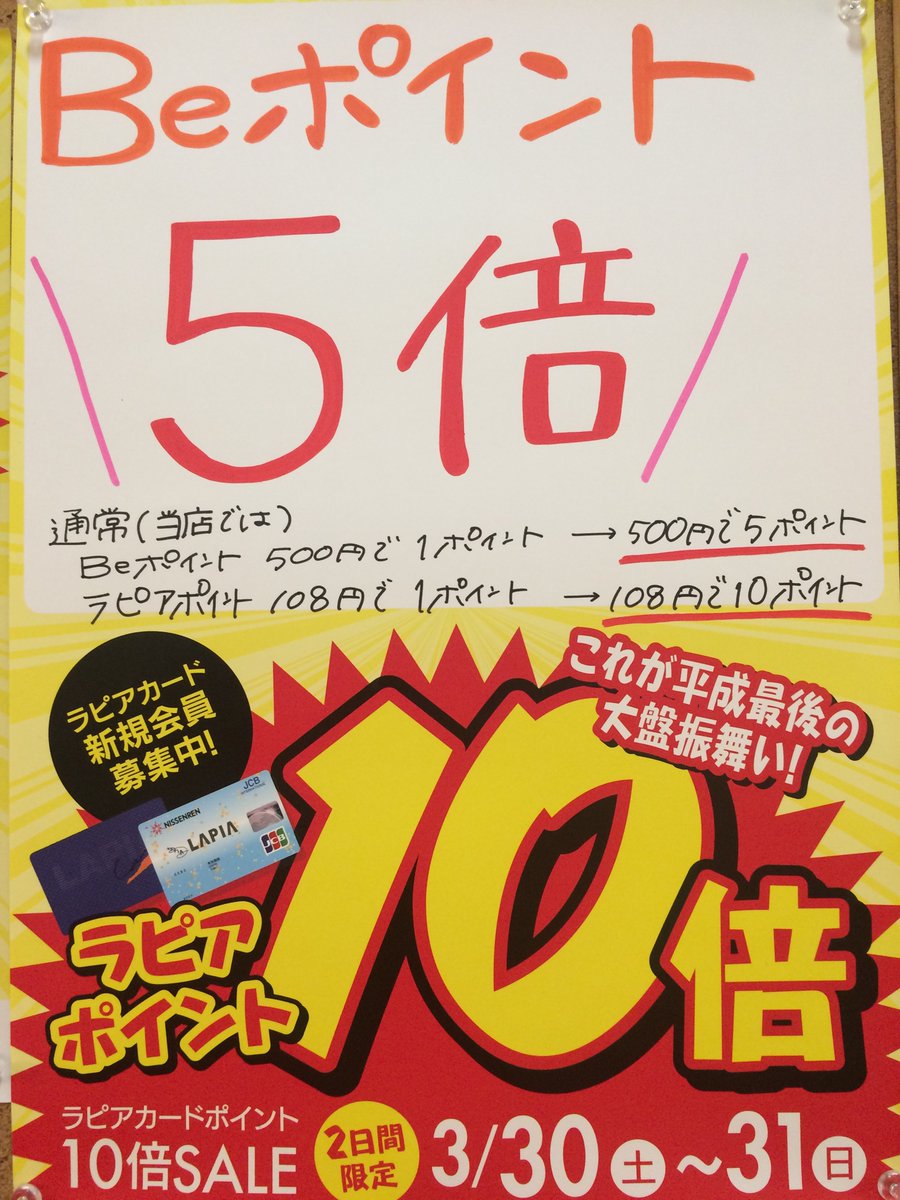 Beポイント
\5倍/
通常(当店では)
Beポイント 500円で 1ポイント → 500円で5ポイント
ラピアポイント 108円で 1ポイント → 108円で10ポイント
ラピアカード
新規会員
募集中!
これが平成最後の
大盤振舞い!
JCB
NISSENREN
LAPIA
JCB
10倍
ラピア
ポイント
ラピアカードポイント
10倍SALE
2日間
限定
3/30土〜31日